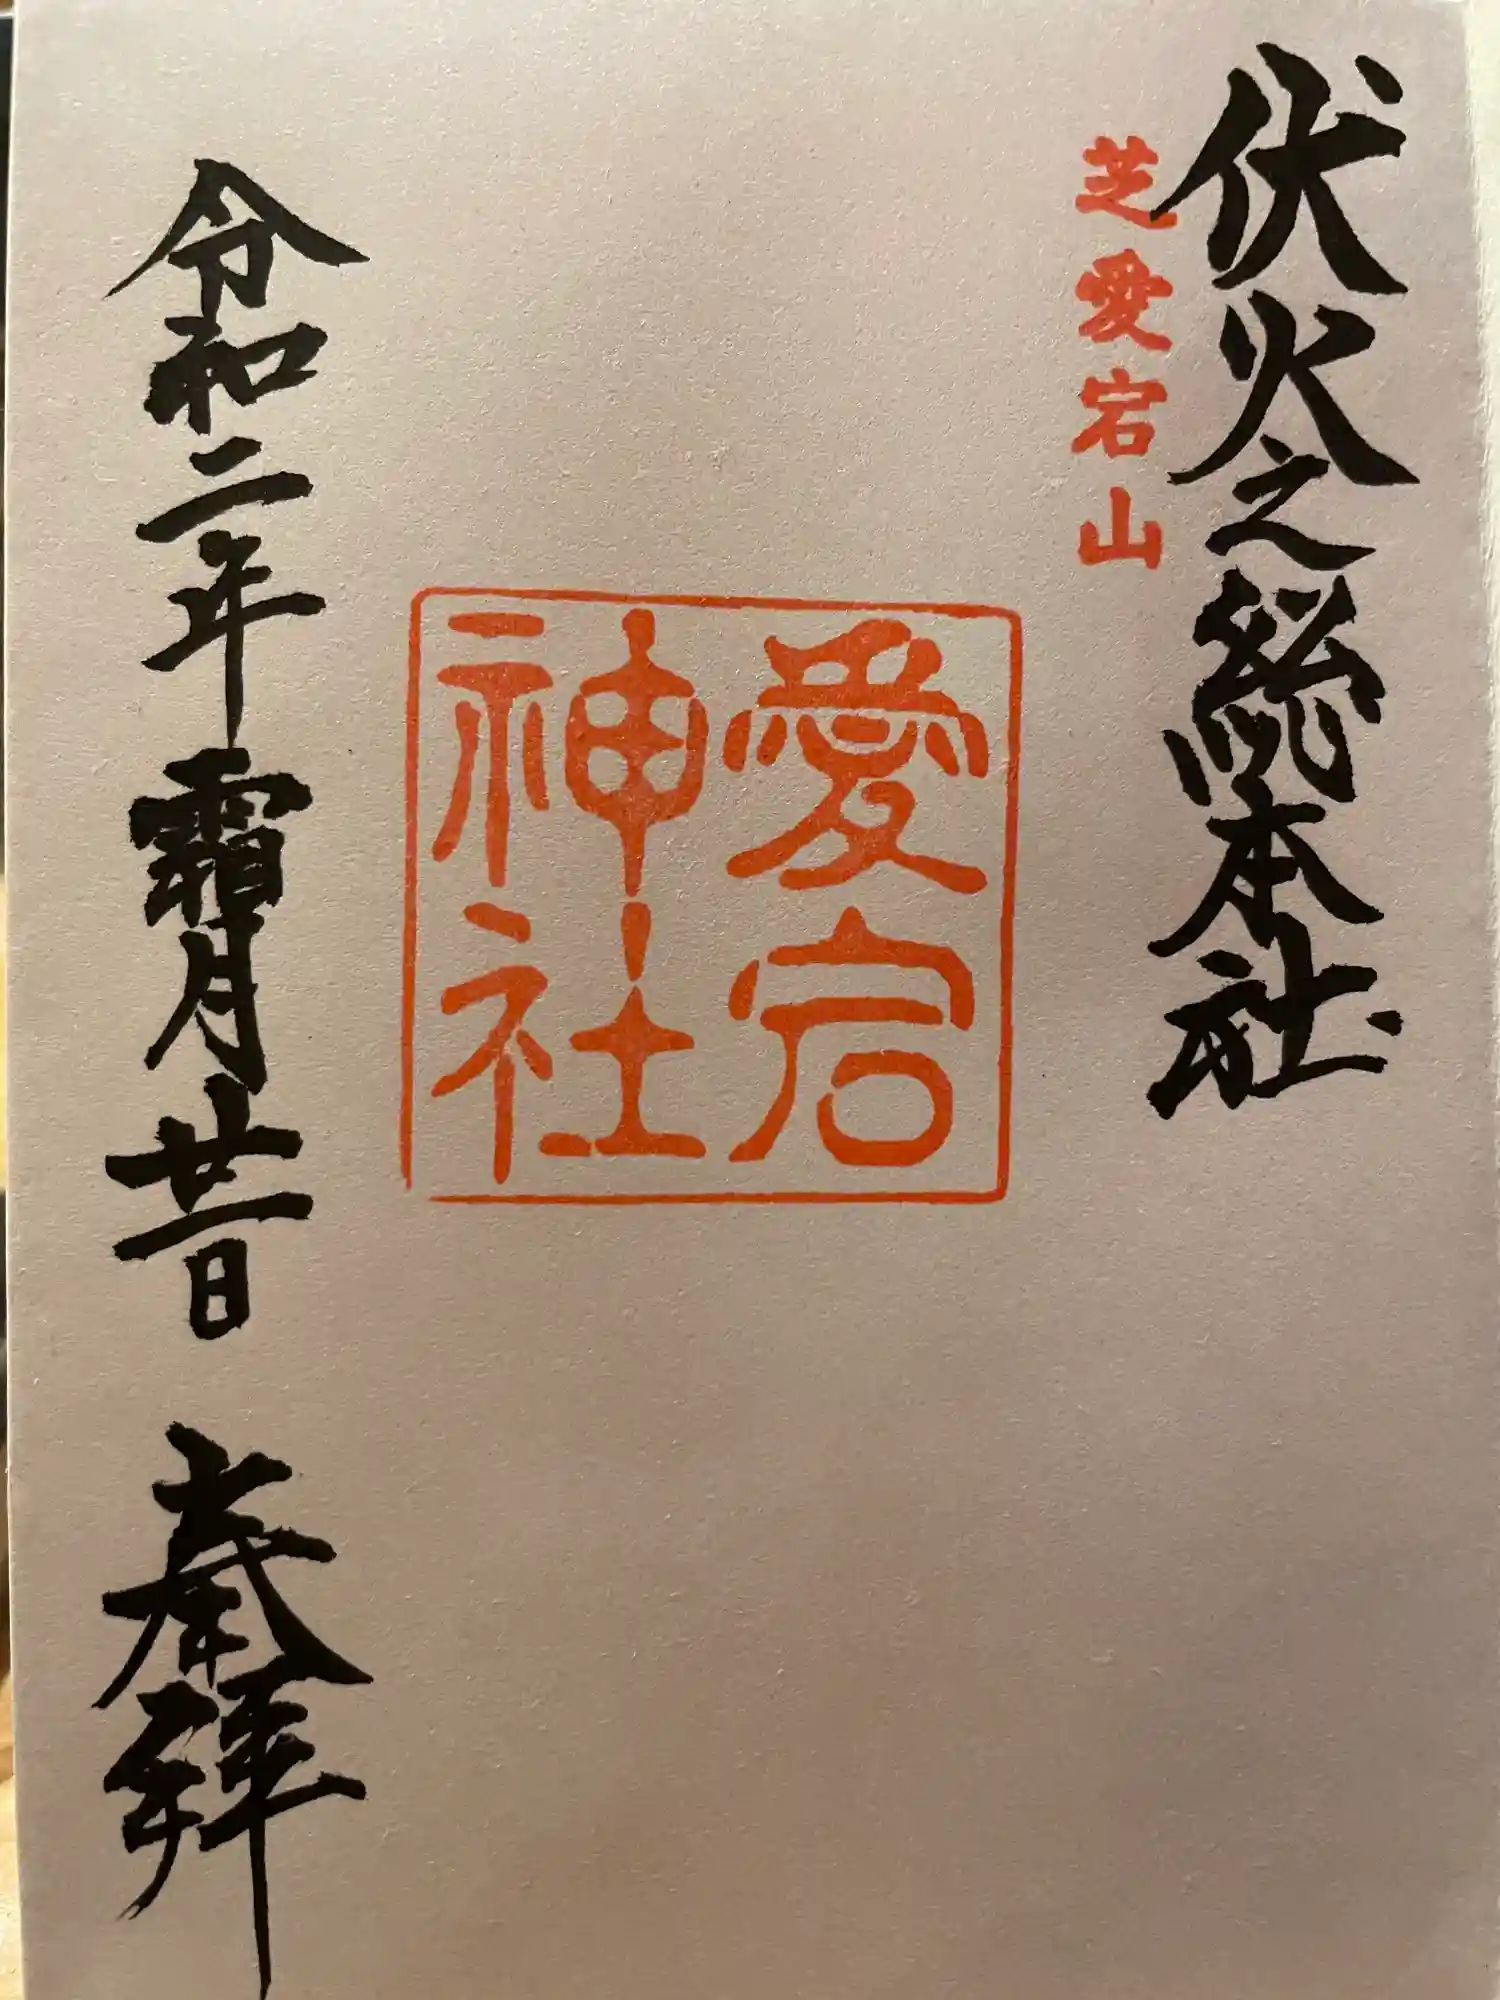 伏火之総本社
芝愛宕山
愛宕
神社
令和二年霜月廿一日 奉拝